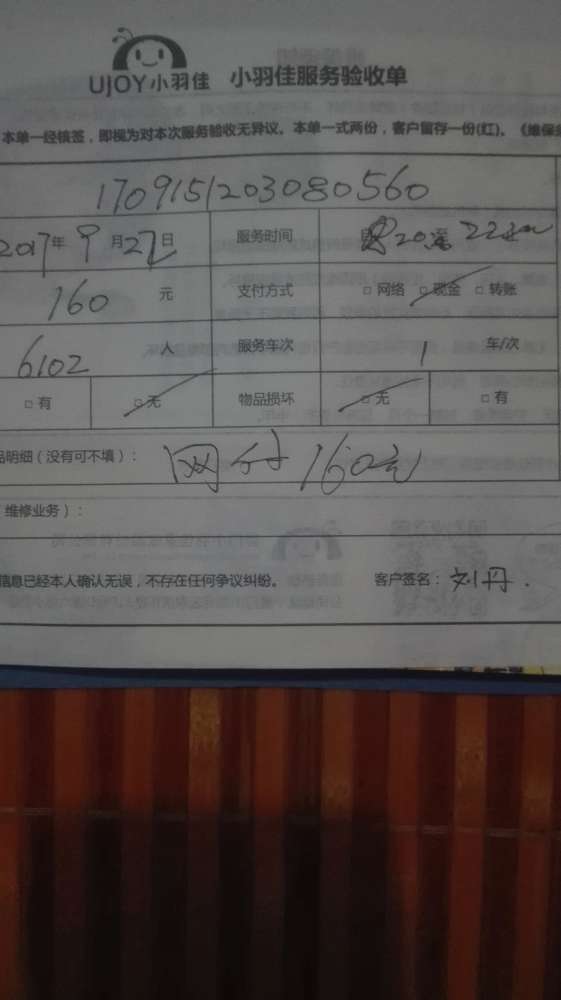 UJOY小羽佳 小羽佳服务验收单
本单一经核签,即视为对本次服务验收无异议。本单一式两份,客户留存一份(红)。《维保
1709151203080560
2017年9月22日 服务时间 20
160 元 支付方式 □ 网络 □ 现金 □ 转账
6102 人 服务车次 1 车/次
□ 有 □ 无 物品损坏 □ 无 □ 有
品明细(没有可不填): 网付160元
维修业务):
信息已经本人确认无误,不存在任何争议纠纷。 客户签名:刘丹.